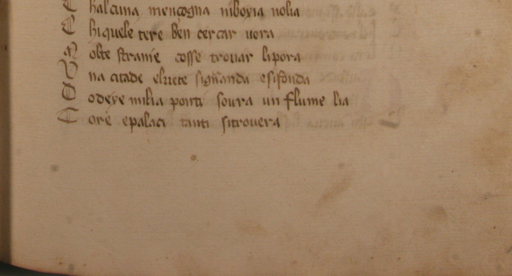 C halcuna mençogna niboxia uolia
C hiquele tere ben cercar uora
M olte stranie cosse trouar lipora
V na citade eluete signanda esifonda
D odexe milia ponti soura un flume lia
T ore epalaci tanti sitrouera